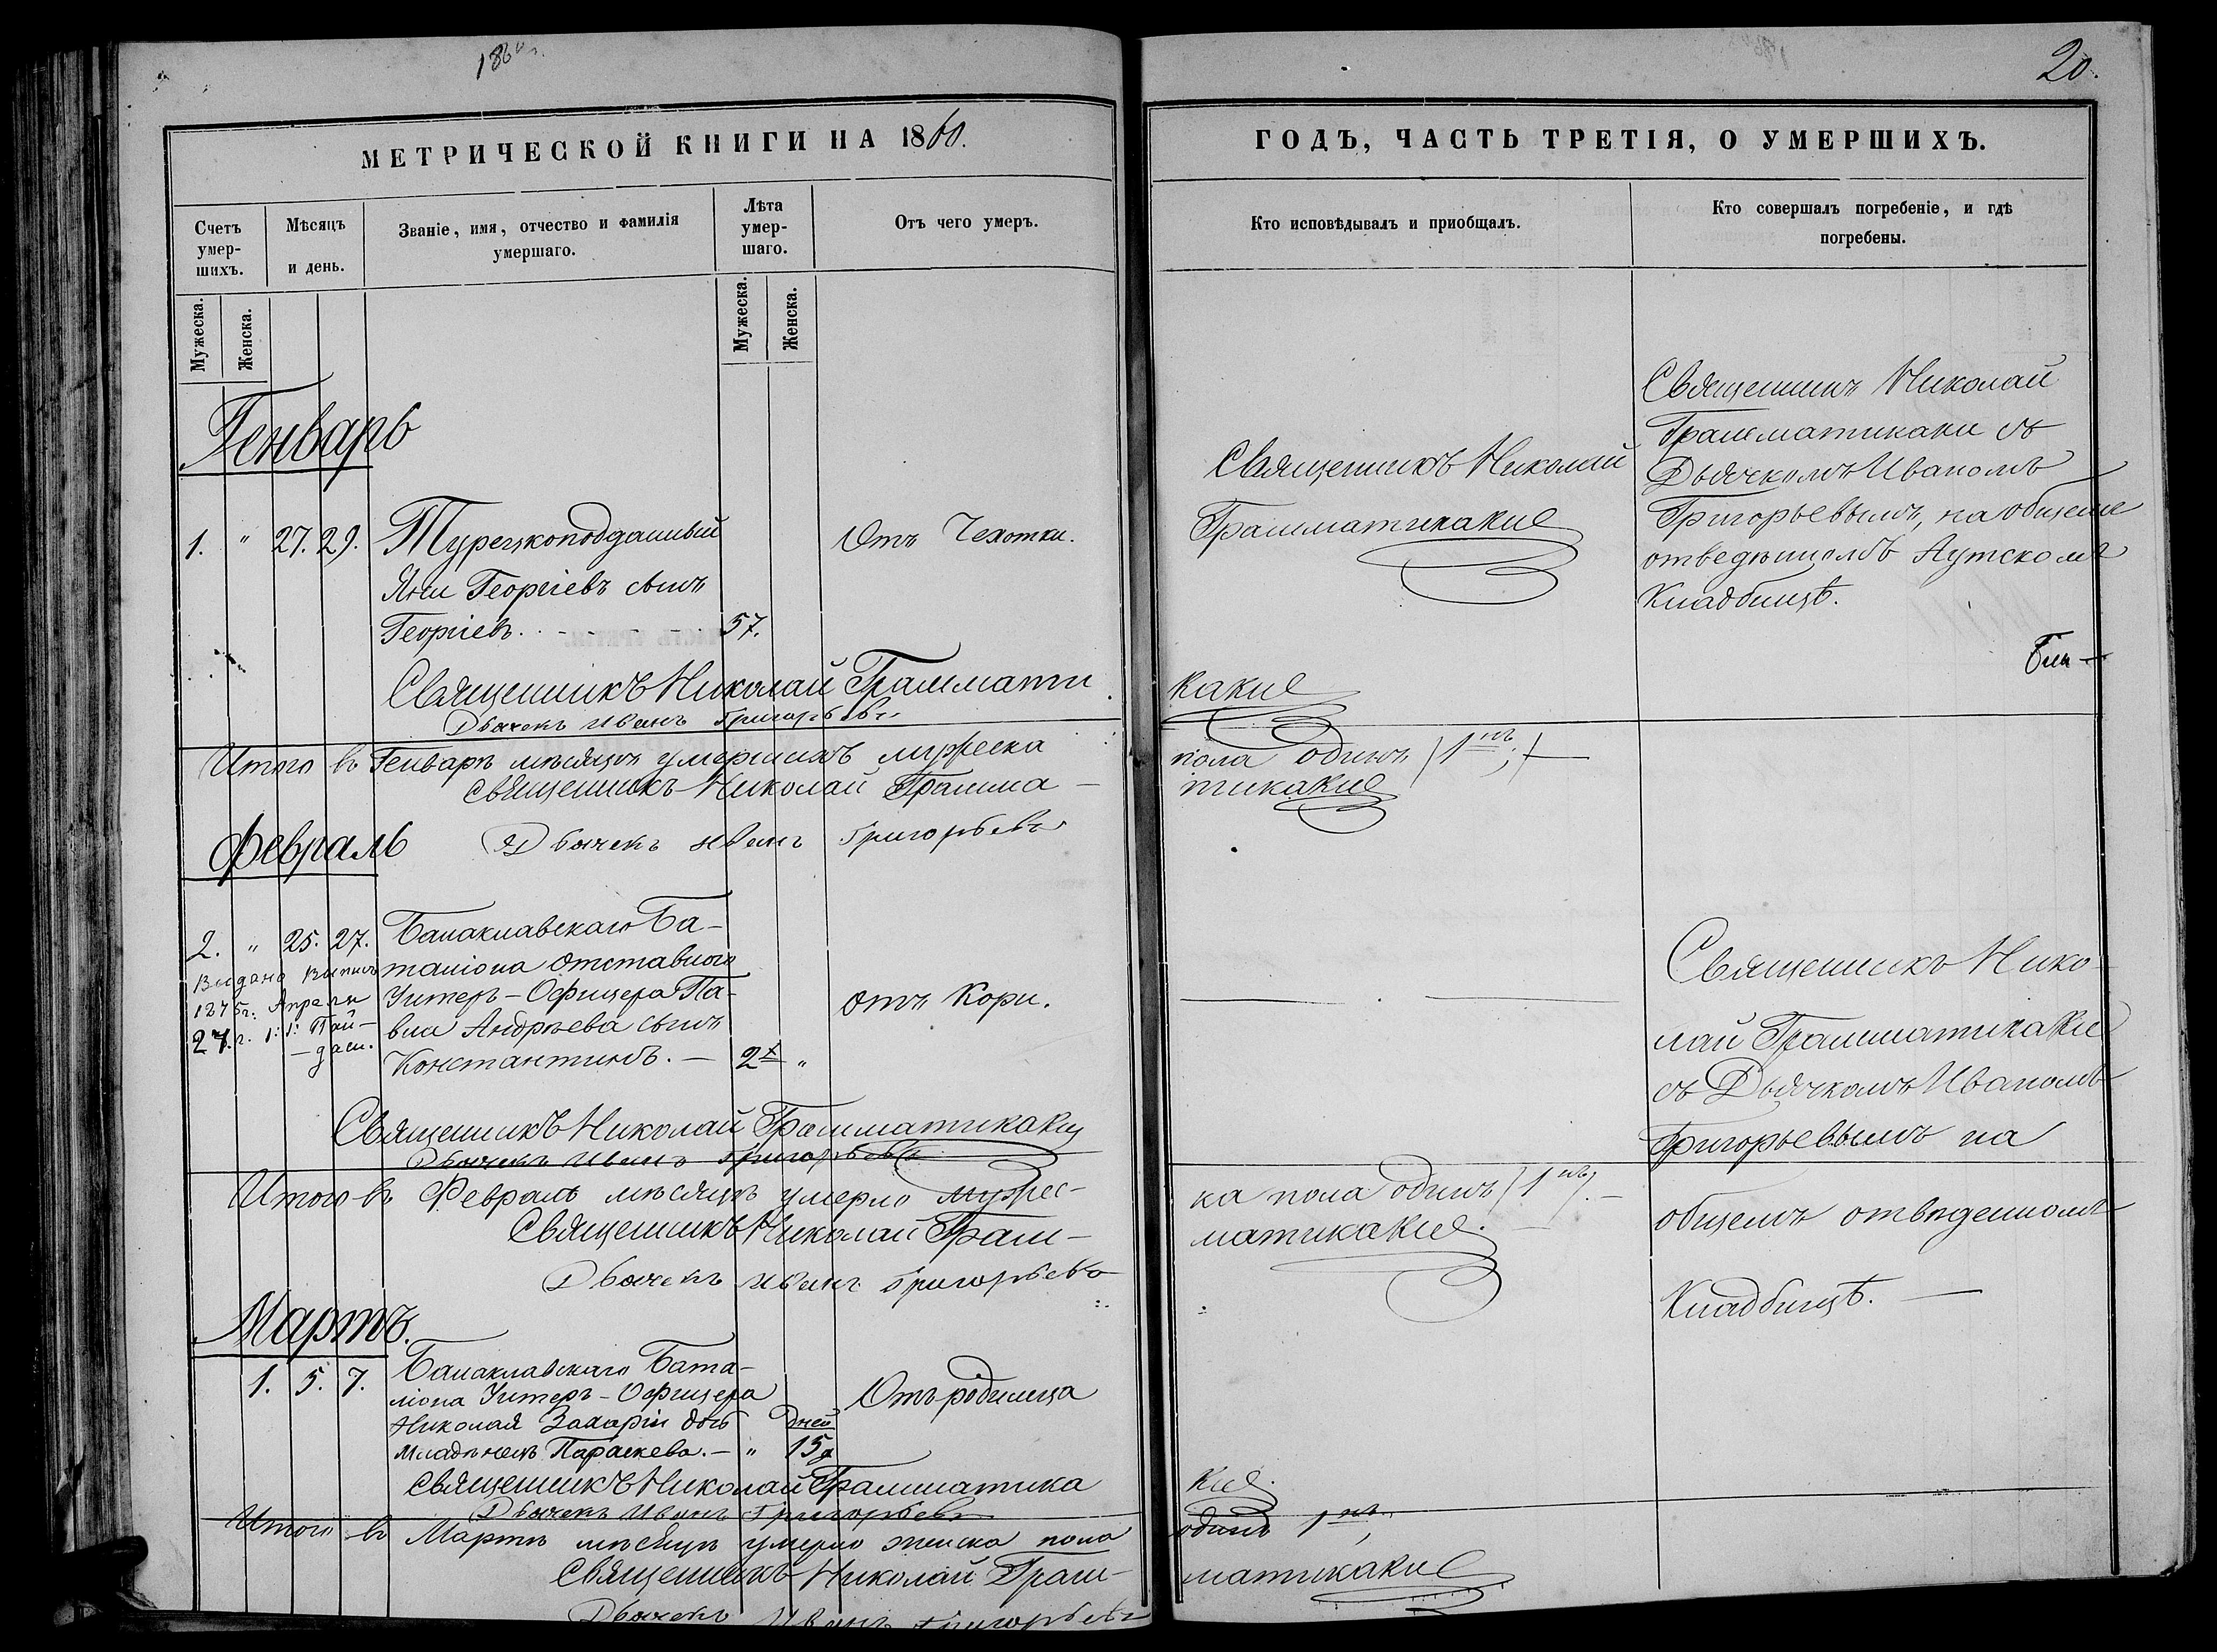 1860 г.
МЕТРИЧЕСКОЙ КНИГИ НА 1860.
Счетъ умер-шихъ.
Мужеска.
Женска.
Мѣсяцъ и день.
Званіе, имя, отчество и фамилія умершаго.
Лѣта умер-шаго.
Мужеска.
Женска.
Отъ чего умеръ.
Генварь
1. " 27. 29. Турецкоподданный
Яни Георгіевъ сынъ
Георгіевъ. 57.
Отъ Чехотки.
Священникъ Николай Граммати
Дьячекъ Иванъ Григорьевъ
Итого въ Генварѣ мѣсяцѣ умершихъ мужеска
Священникъ Николай Грамма-
Февраль
Дьячекъ Иванъ Григорьевъ
2. " 25. 27. Балаклавскаго Ба-
таліона отставного
Унтеръ-Офицера Па-
вла Андрѣева сынъ
Константинъ. - 2 "
отъ Кори.
Выдано
1875г. Апреля
27.
Священникъ Николай Грамматикаки
Дьячекъ Иванъ Григорьевъ
Итого въ Февралѣ мѣсяцѣ умерло мужес-
Священникъ Николай Грам-
Дьячекъ Иванъ Григорьевъ
Мартъ.
1. 5. 7. Балаклавскаго Бата-
ліона Унтеръ-Офицера
Николая Захаріи дочь
Младѣнецъ Параскева. - " Дней 15
Отъ родимца
Священникъ Николай Грамматика
Дьячекъ Иванъ Григорьевъ
Итого въ Мартѣ мѣсяцѣ умерло женска пола
Священникъ Николай Грам-
Дьячекъ Иванъ Григорьевъ
20.
ГОДЪ, ЧАСТЬ ТРЕТІЯ, О УМЕРШИХЪ.
Кто исповѣдывалъ и приобщалъ.
Кто совершалъ погребеніе, и гдѣ
погребены.
Священникъ Николай
Грамматикаки
Священникъ Николай
Грамматикаки съ
Дьячкомъ Иваномъ
Григорьевымъ, на общеме
отведѣнномъ Аутскомъ
Кладбищѣ.
каки
пола одинъ (1нъ;)
тикаки
Священникъ Нико-
лай Грамматикаки
съ Дьячкомъ Иваномъ
Григорьевымъ на
общемъ отведенномъ
Кладбищѣ.
ка пола одинъ (1нъ).
матикаки.
ки.
одинъ 1нъ.
матикаки